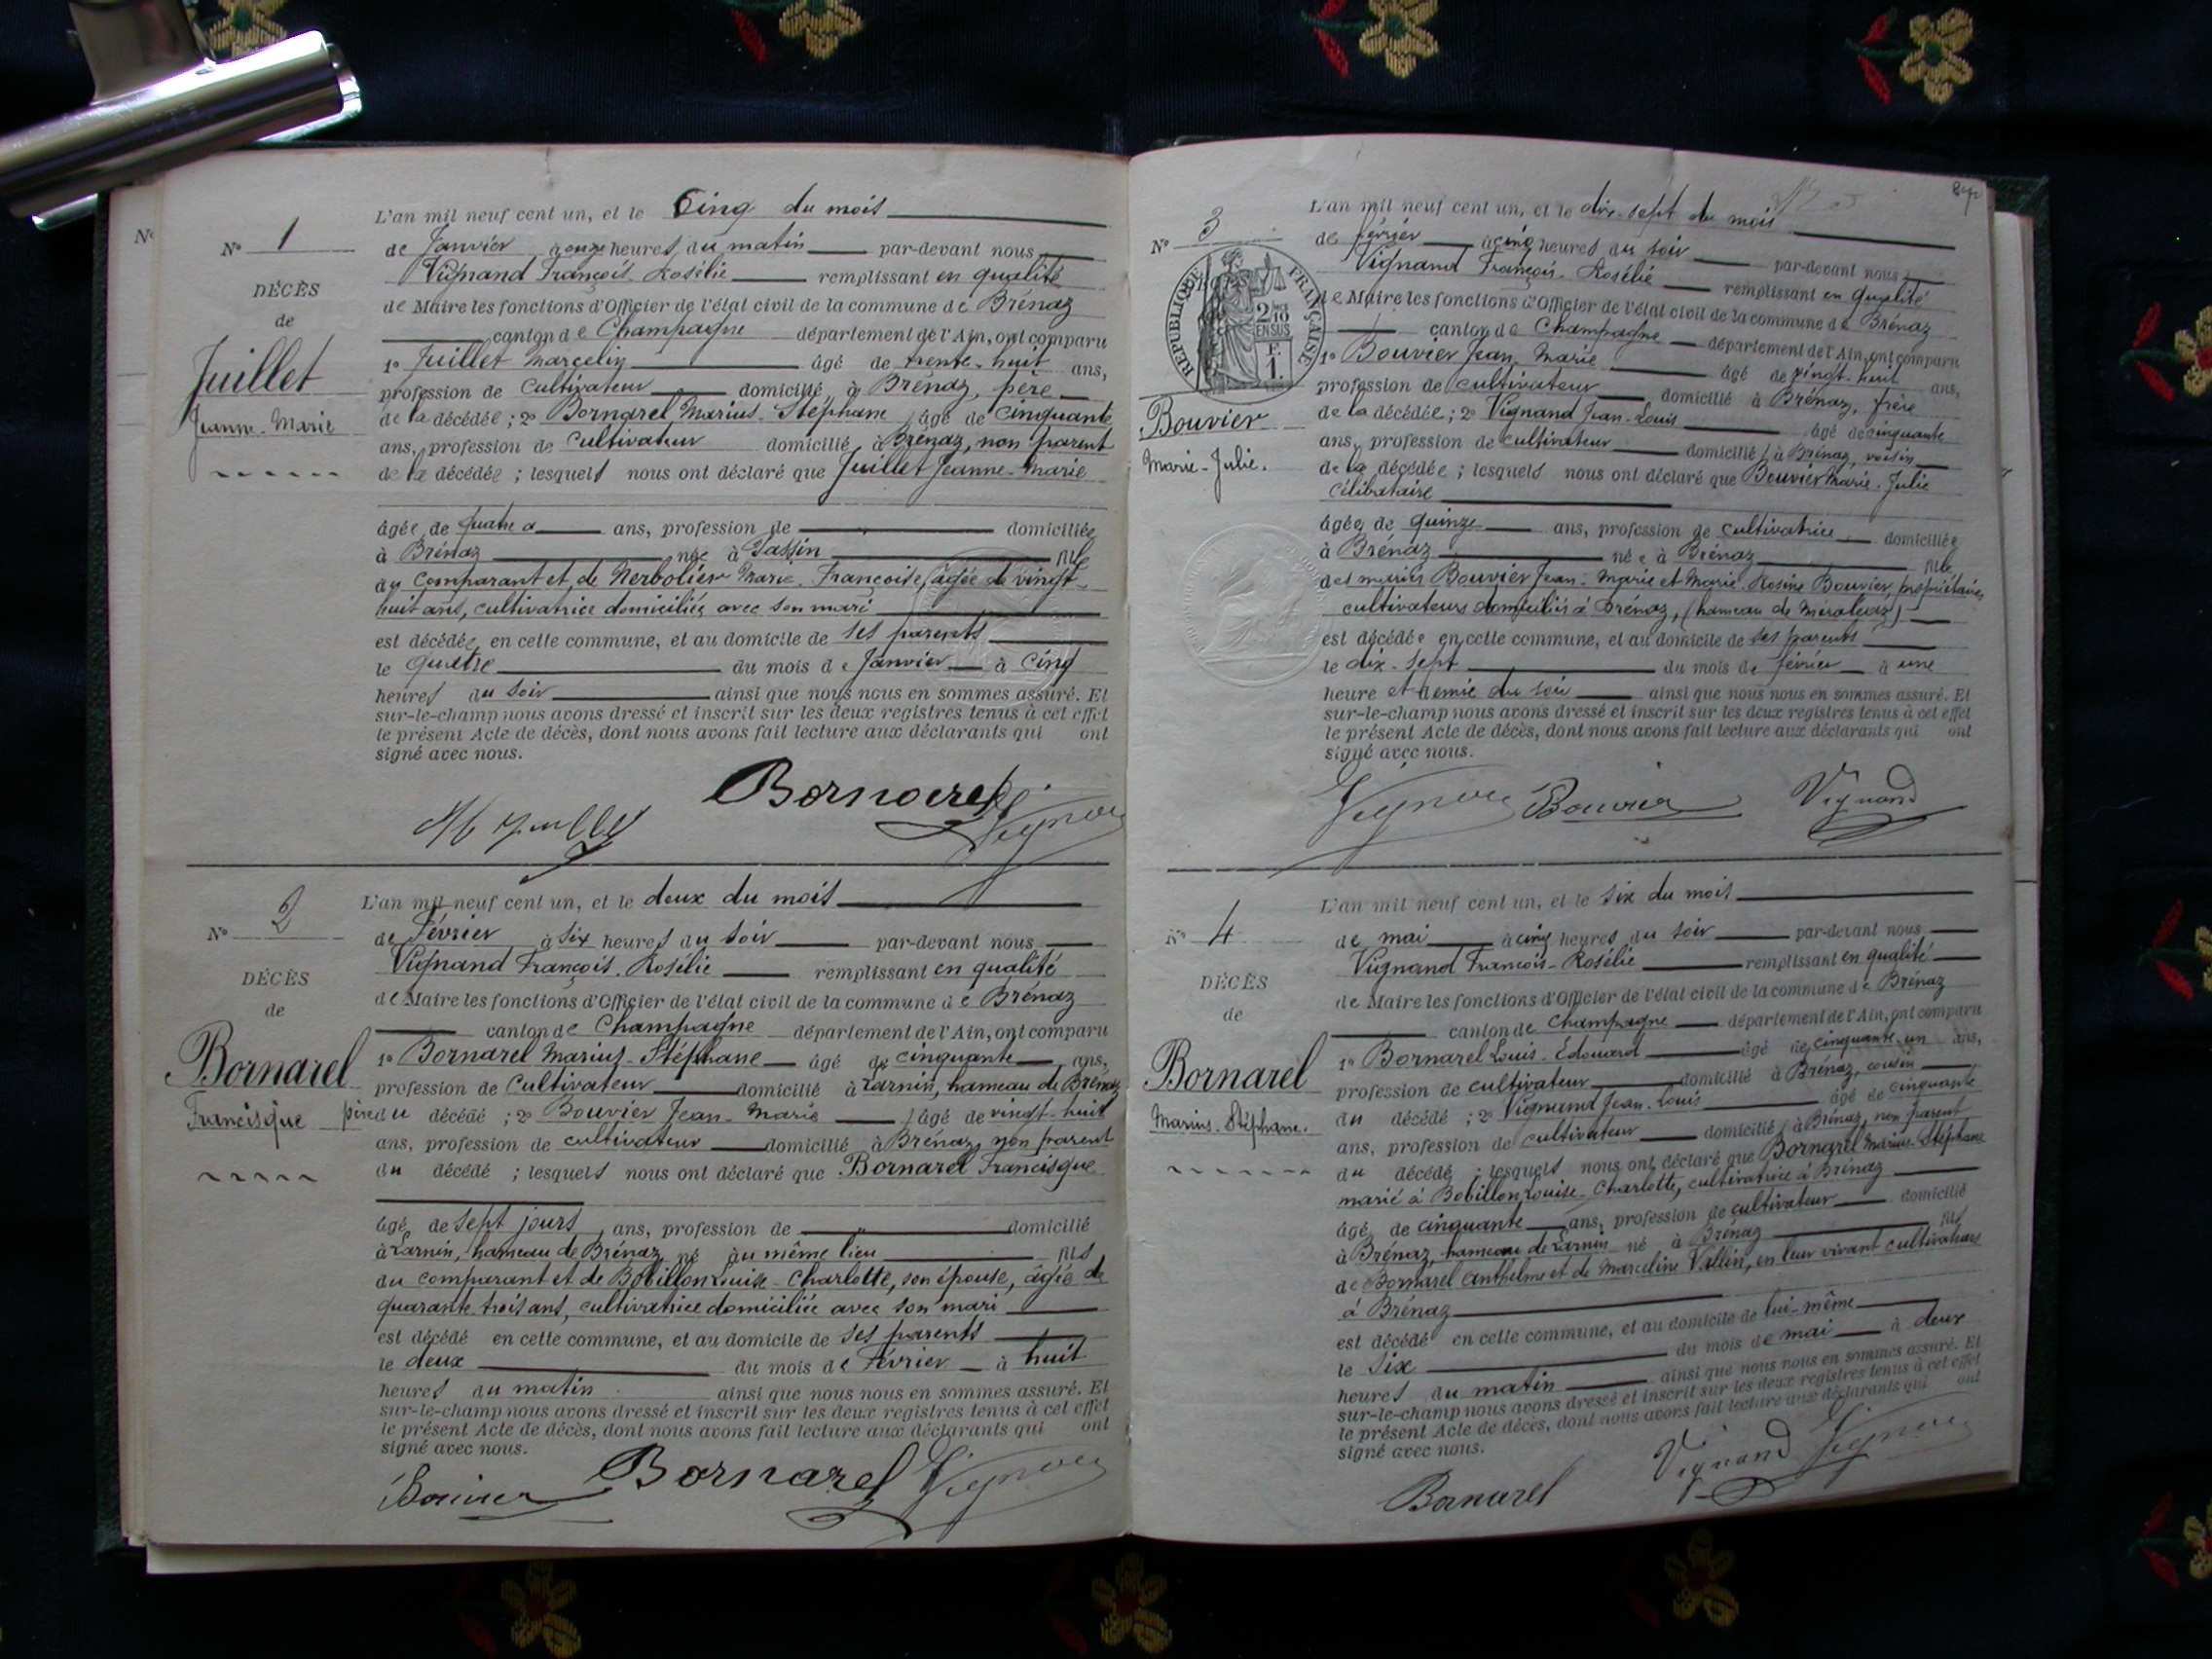 Nº 1
DÉCÈS
de
Juillet
Jeanne-Marie
L'an mil neuf cent un, et le Cinq du mois
de Janvier à onze heures du matin par-devant nous
Vignand François-Rosélie remplissant en qualité
de Maire les fonctions d'Officier de l'état civil de la commune de Brénaz
canton de Champagne département de l'Ain, ont comparu
1º Juillet Marcelin âgé de trente-huit ans,
profession de cultivateur domicilié à Brénaz, père
de la décédée ; 2º Bornarel Marius-Stéphane âgé de cinquante
ans, profession de cultivateur domicilié à Brénaz, non parent
de la décédée ; lesquels nous ont déclaré que Juillet Jeanne-Marie
âgée de quatre ans, profession de domiciliée
à Brénaz née à Tassin fille
du comparant et de Nerbolier Marie-Françoise, âgée de vingt-
huit ans, cultivatrice domiciliée avec son mari
est décédée en cette commune, et au domicile de ses parents
le quatre du mois de Janvier à cinq
heures du soir ainsi que nous nous en sommes assuré. Et
sur-le-champ nous avons dressé et inscrit sur les deux registres tenus à cet effet
le présent Acte de décès, dont nous avons fait lecture aux déclarants qui ont
signé avec nous.
Bornarel
Nº 2
DÉCÈS
de
Bornarel
Francisque
L'an mil neuf cent un, et le deux du mois
de Février à six heures du soir par-devant nous
Vignand François-Rosélie remplissant en qualité
de Maire les fonctions d'Officier de l'état civil de la commune de Brénaz
canton de Champagne département de l'Ain, ont comparu
1º Bornarel Marius-Stéphane âgé de cinquante ans,
profession de cultivateur domicilié à Larnin, hameau de Brénaz
père du décédé ; 2º Bouvier Jean-Marie âgé de vingt-huit
ans, profession de cultivateur domicilié à Brénaz, non parent
du décédé ; lesquels nous ont déclaré que Bornarel Francisque
âgé de sept jours ans, profession de " domicilié
à Larnin, hameau de Brénaz né au même lieu fils
du comparant et de Bobillon Louise-Charlotte, son épouse, âgée de
quarante trois ans, cultivatrice domiciliée avec son mari
est décédé en cette commune, et au domicile de ses parents
le deux du mois de Février à huit
heures du matin ainsi que nous nous en sommes assuré. Et
sur-le-champ nous avons dressé et inscrit sur les deux registres tenus à cet effet
le présent Acte de décès, dont nous avons fait lecture aux déclarants qui ont
signé avec nous.
Bouvier Bornarel
Nº 3
RÉPUBLIQUE FRANÇAISE
2/10 EN SUS
F. 1.
Bouvier
Marie-Julie.
L'an mil neuf cent un, et le dix-sept du mois
de février à cinq heures du soir par-devant nous
Vignand François-Rosélie remplissant en qualité
de Maire les fonctions d'Officier de l'état civil de la commune de Brénaz
canton de Champagne département de l'Ain, ont comparu
1º Bouvier Jean-Marie âgé de vingt-huit ans,
profession de cultivateur domicilié à Brénaz, frère
de la décédée ; 2º Vignand Jean-Louis âgé de cinquante
ans, profession de cultivateur domicilié à Brénaz, voisin
de la décédée ; lesquels nous ont déclaré que Bouvier Marie-Julie
célibataire
âgée de quinze ans, profession de cultivatrice domiciliée
à Brénaz née à Brénaz fille
des mariés Bouvier Jean-Marie et Marie-Rosine Bouvier, propriétaires
cultivateurs domiciliés à Brénaz, (hameau de
est décédée en cette commune, et au domicile de ses parents
le dix-sept du mois de février à une
heure et demie du soir ainsi que nous nous en sommes assuré. Et
sur-le-champ nous avons dressé et inscrit sur les deux registres tenus à cet effet
le présent Acte de décès, dont nous avons fait lecture aux déclarants qui ont
signé avec nous.
Bouvier Vignand
Nº 4
DÉCÈS
de
Bornarel
Marius-Stéphane.
L'an mil neuf cent un, et le six du mois
de mai à cinq heures du soir par-devant nous
Vignand François-Rosélie remplissant en qualité
de Maire les fonctions d'Officier de l'état civil de la commune de Brénaz
canton de Champagne département de l'Ain, ont comparu
1º Bornarel Louis-Edouard âgé de cinquante-un ans,
profession de cultivateur domicilié à Brénaz, cousin
du décédé ; 2º Vignand Jean-Louis âgé de cinquante
ans, profession de cultivateur domicilié à Brénaz, non parent
du décédé ; lesquels nous ont déclaré que Bornarel Marius-Stéphane
marié à Bobillon Louise-Charlotte, cultivatrice à Brénaz
âgé de cinquante ans, profession de cultivateur domicilié
à Brénaz, hameau de Larnin né à Brénaz fils
de Bornarel Anthelme et de Marceline Vallin, en leur vivant cultivateurs
à Brénaz
est décédé en cette commune, et au domicile de lui-même
le six du mois de mai à deux
heures du matin ainsi que nous nous en sommes assuré. Et
sur-le-champ nous avons dressé et inscrit sur les deux registres tenus à cet effet
le présent Acte de décès, dont nous avons fait lecture aux déclarants qui ont
signé avec nous.
Bornarel Vignand